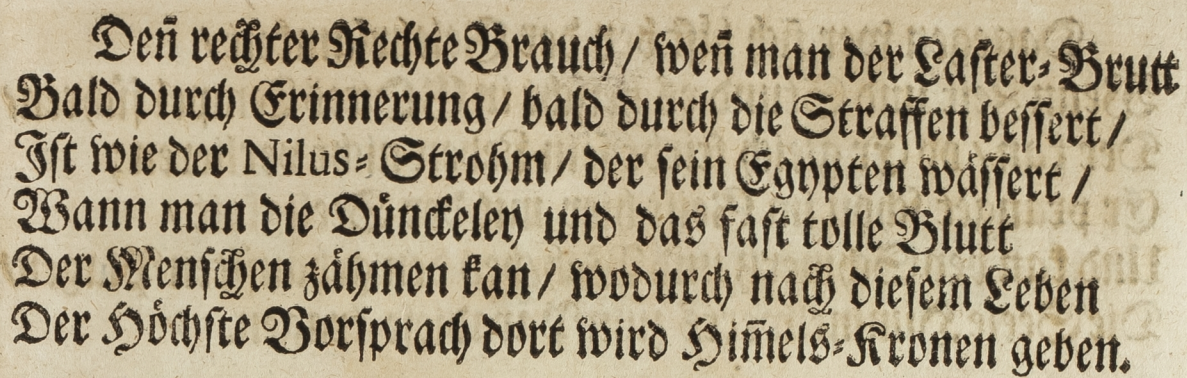 Deñ rechter Rechte Brauch / weñ man der Laster-Brutt
Bald durch Erinnerung / bald durch die Straffen bessert /
Ist wie der Nilus-Strohm / der sein Egypten wässert /
Wann man die Dünckeley und das fast tolle Blutt
Der Menschen zähmen kan / wodurch nach diesem Leben
Der Höchste Vorsprach dort wird Him̃els-Kronen geben.